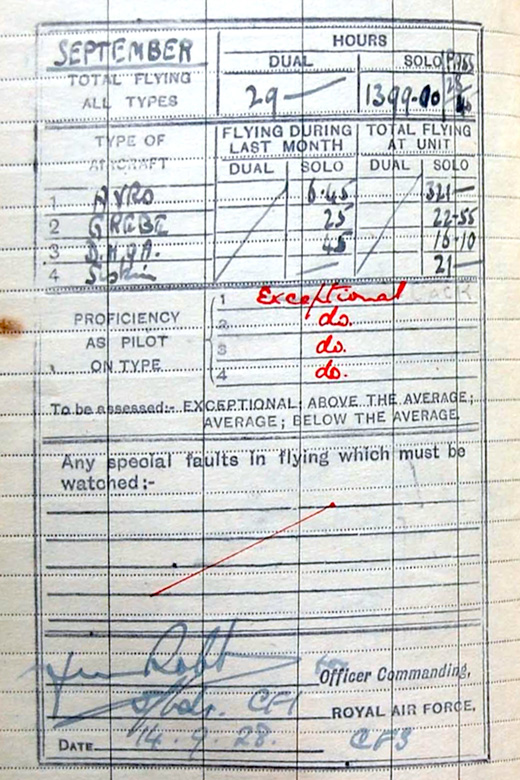 SEPTEMBER
HOURS
DUAL SOLO PASS
TOTAL FLYING
ALL TYPES
29 — 1399-00
TYPE OF
AIRCRAFT
FLYING DURING
LAST MONTH
TOTAL FLYING
AT UNIT
DUAL SOLO DUAL SOLO
1 AVRO 6.45 321 —
2 GREBE 25 22-55
3 D.H.9A. 45 16-10
4 Siskin — 21 —
PROFICIENCY
AS PILOT
ON TYPE
1 Exceptional
2 do.
3 do.
4 do.
To be assessed:- EXCEPTIONAL; ABOVE THE AVERAGE;
AVERAGE; BELOW THE AVERAGE.
Any special faults in flying which must be
watched:-
Robb
for Officer Commanding,
S/Ldr. CFI
ROYAL AIR FORCE,
DATE 14.9.28. CFS